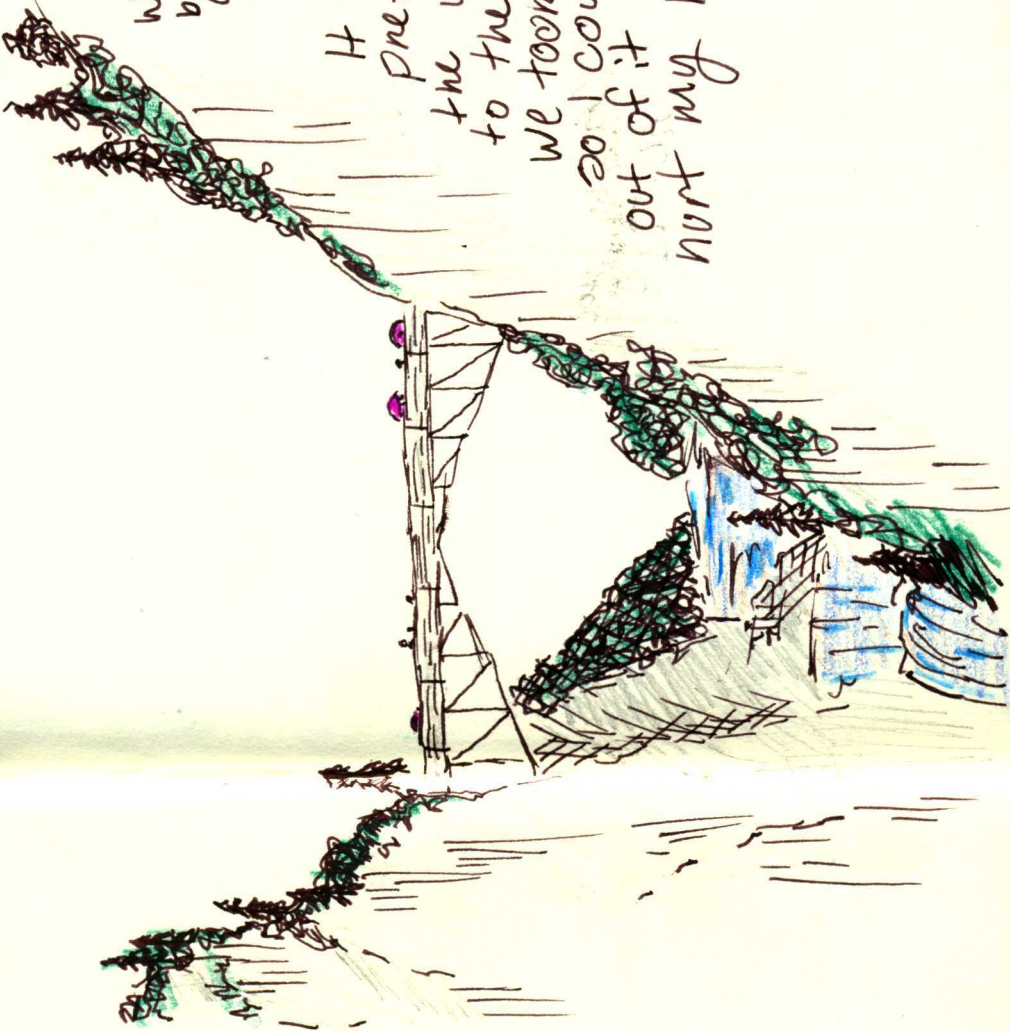 It
pre
the
to the
we took
so I cou
out of it
hurt my